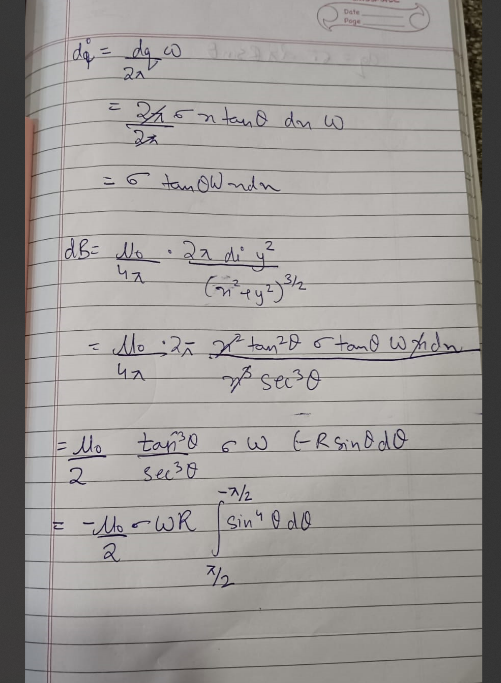 Date
Page
di = dq/2π ω
= 2π/2π σ x tanθ dx ω
= σ tanθ ω x dx
dB = μ₀/4π · 2π di y²/(x²+y²)^3/2
= μ₀/4π · 2π x² tan²θ σ tanθ ω x dx/x³ sec³θ
= μ₀/2 tan³θ/sec³θ σ ω (-R sinθ dθ
= -μ₀/2 σ ω R ∫_{π/2}^{-π/2} sin⁴ θ dθ